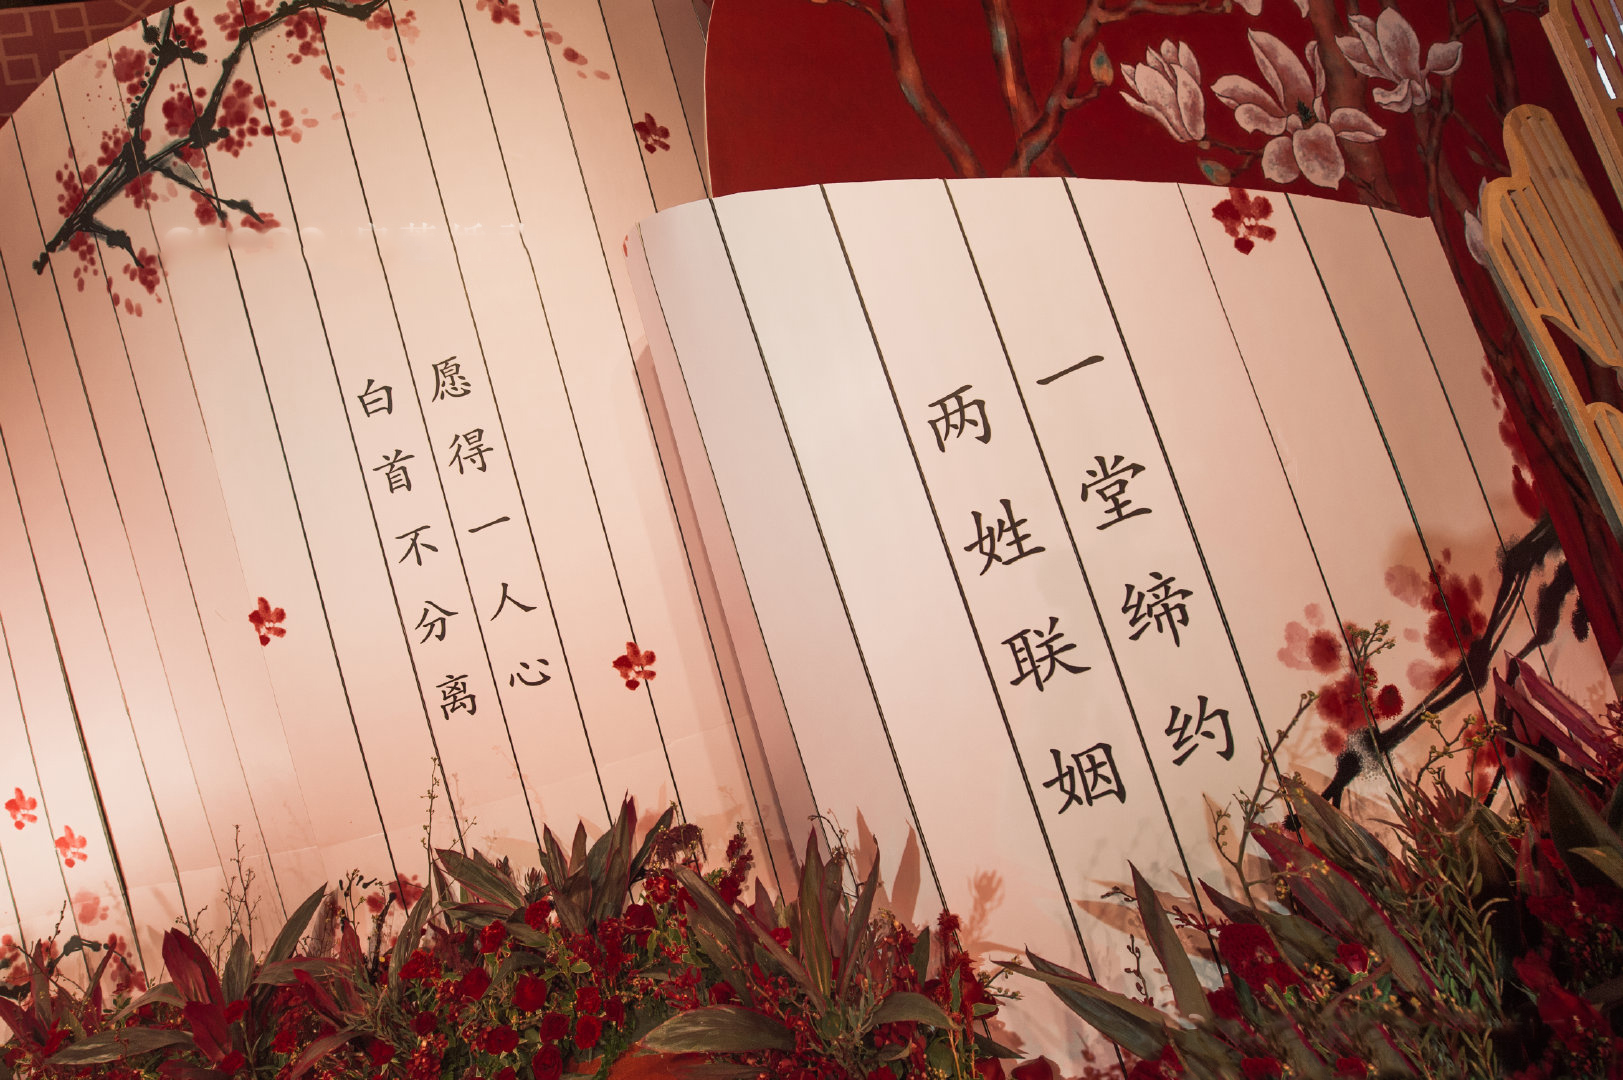 两姓联姻
一堂缔约
愿得一人心
白首不分离